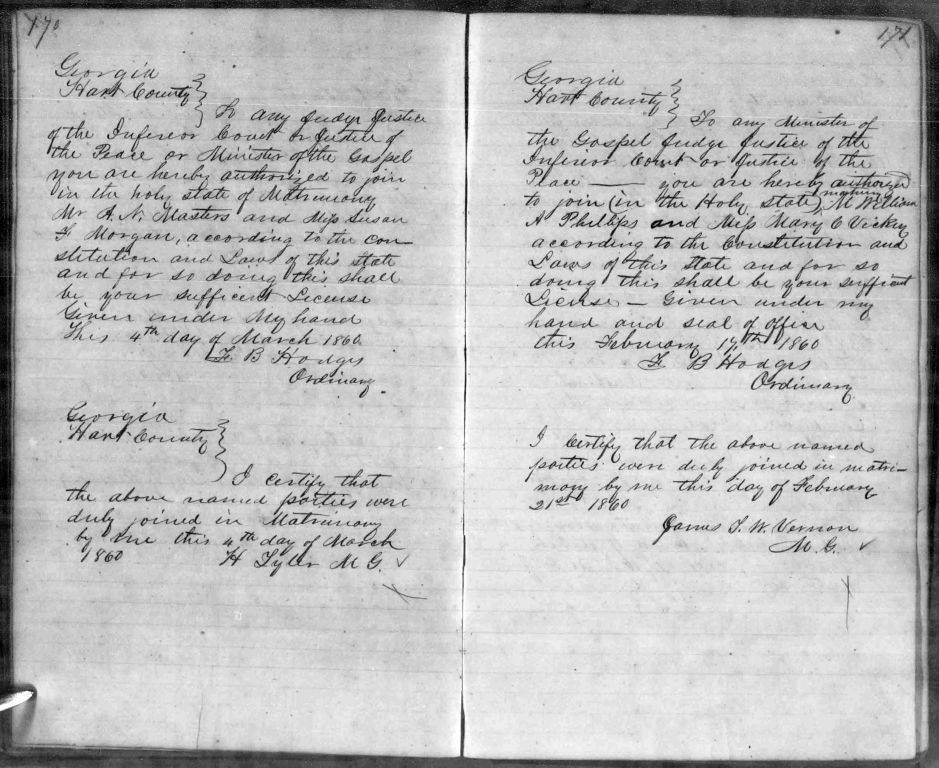 170
Georgia
Hart County
To any Judge Justice
of the Inferor Court or Justice of
the Peace or Minister of the Gospel
you are hereby authorized to join
in the holy state of Matrimony
Mr A. N. Masters and Miss Susan
F Morgan, according to the con-
stitution and Laws of this state
and for so doing this shall
be your sufficent License
Given under My hand
This 4th day of March 1860
F. B Hodges
Ordinary
Georgia
Hart County
I certify that
the above named parties were
duly joined in Matrimony
by me this 4th day of March
1860 H Tyler M G.
171
Georgia
Hart County
To any Minister of
the Gospel Judge Justice of the
Inferior Court or Justice of the
Peace — you are hereby authorized
to join (in the Holy state) M William
A Phillips and Miss Mary C Vickery
according to the Constitution and
Laws of this state and for so
doing this shall be your sufficint
License — Given under my
hand and seal of office
this February 17th 1860
F. B Hodges
Ordinary
I Certify that the above named
parties were duly joined in matri-
mony by me this day of February
21st 1860
James T. W. Vernon
M. G.